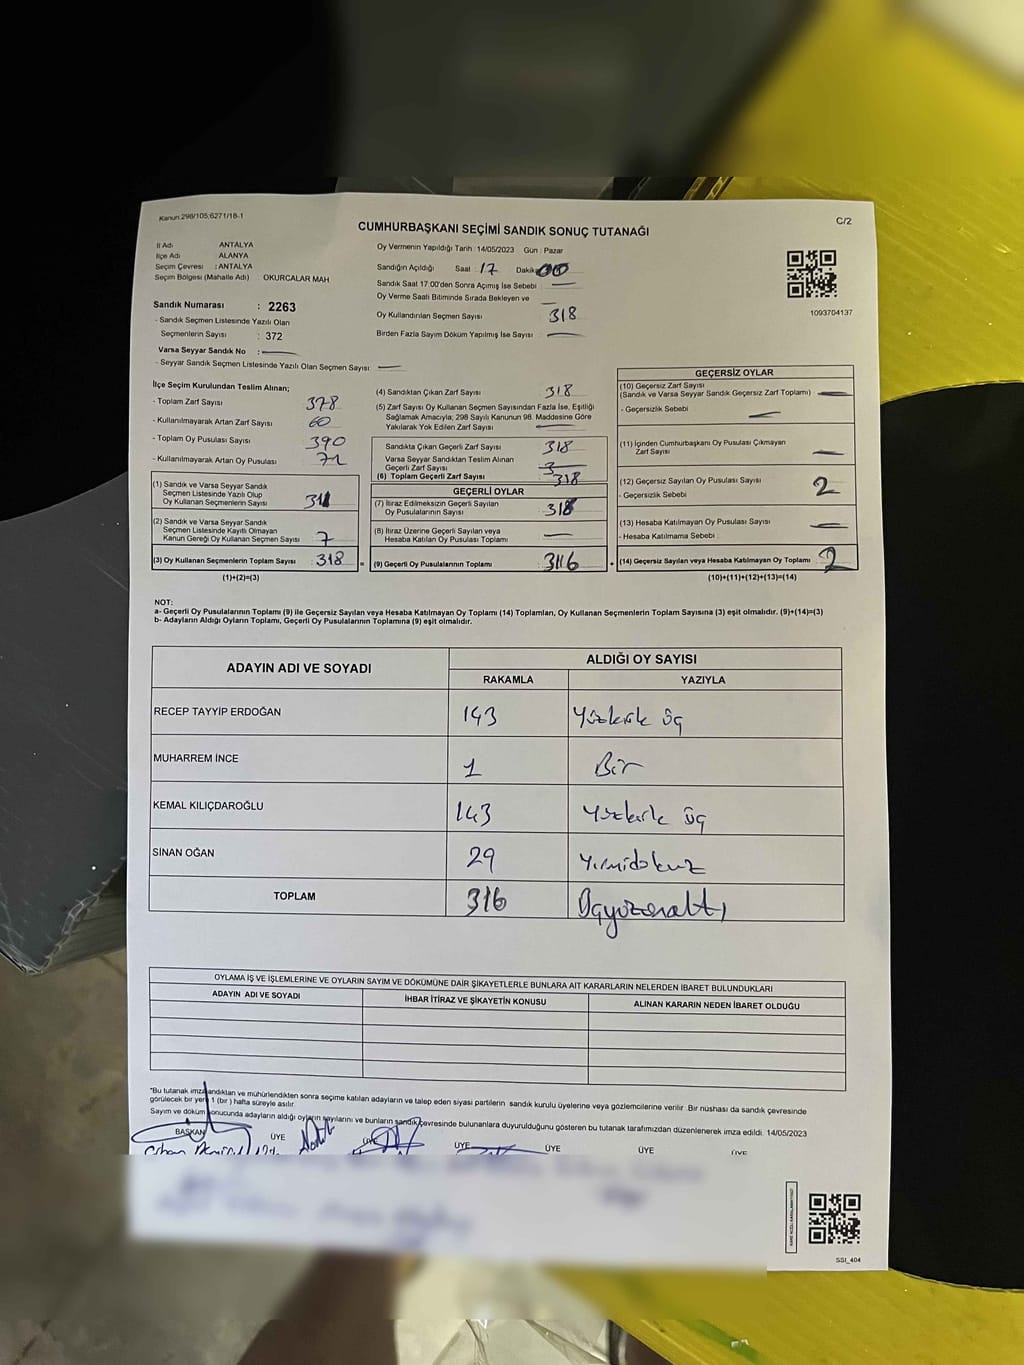 Kanun:298/105;6271/18-1
C/2
CUMHURBAŞKANI SEÇİMİ SANDIK SONUÇ TUTANAĞI
İl Adı ANTALYA
İlçe Adı ALANYA
Seçim Çevresi : ANTALYA
Seçim Bölgesi (Mahalle Adı) : OKURCALAR MAH
Oy Vermenin Yapıldığı Tarih : 14/05/2023 Gün : Pazar
Sandığın Açıldığı Saat 17 Dakika 00
Sandık Saat 17:00'den Sonra Açımış İse Sebebi
Oy Verme Saati Bitiminde Sırada Bekleyen ve
Oy Kullandırılan Seçmen Sayısı 318
Birden Fazla Sayım Döküm Yapılmış İse Sayısı
1093704137
Sandık Numarası : 2263
- Sandık Seçmen Listesinde Yazılı Olan
Seçmenlerin Sayısı : 372
Varsa Seyyar Sandık No :
- Seyyar Sandık Seçmen Listesinde Yazılı Olan Seçmen Sayısı:
İlçe Seçim Kurulundan Teslim Alınan;
- Toplam Zarf Sayısı 378
- Kullanılmayarak Artan Zarf Sayısı 60
- Toplam Oy Pusulası Sayısı 390
- Kullanılmayarak Artan Oy Pusulası 72
(1) Sandık ve Varsa Seyyar Sandık
Seçmen Listesinde Yazılı Olup
Oy Kullanan Seçmenlerin Sayısı 311
(2) Sandık ve Varsa Seyyar Sandık
Seçmen Listesinde Kayıtlı Olmayan
Kanun Gereği Oy Kullanan Seçmen Sayısı : 7
(3) Oy Kullanan Seçmenlerin Toplam Sayısı : 318
(1)+(2)=(3)
(4) Sandıktan Çıkan Zarf Sayısı 318
(5) Zarf Sayısı Oy Kullanan Seçmen Sayısından Fazla İse, Eşitliği
Sağlamak Amacıyla; 298 Sayılı Kanunun 98. Maddesine Göre
Yakılarak Yok Edilen Zarf Sayısı
Sandıkta Çıkan Geçerli Zarf Sayısı 318
Varsa Seyyar Sandıktan Teslim Alınan
Geçerli Zarf Sayısı
(6) Toplam Geçerli Zarf Sayısı 318
GEÇERLİ OYLAR
(7) İtiraz Edilmeksizin Geçerli Sayılan
Oy Pusulalarının Sayısı 318
(8) İtiraz Üzerine Geçerli Sayılan veya
Hesaba Katılan Oy Pusulası Toplamı
(9) Geçerli Oy Pusulalarının Toplamı 3116
GEÇERSİZ OYLAR
(10) Geçersiz Zarf Sayısı
(Sandık ve Varsa Seyyar Sandık Geçersiz Zarf Toplamı)
- Geçersizlik Sebebi
(11) İçinden Cumhurbaşkanı Oy Pusulası Çıkmayan
Zarf Sayısı
(12) Geçersiz Sayılan Oy Pusulası Sayısı 2
- Geçersizlik Sebebi
(13) Hesaba Katılmayan Oy Pusulası Sayısı
- Hesaba Katılmama Sebebi
(14) Geçersiz Sayılan veya Hesaba Katılmayan Oy Toplamı 2
(10)+(11)+(12)+(13)=(14)
NOT:
a- Geçerli Oy Pusulalarının Toplamı (9) ile Geçersiz Sayılan veya Hesaba Katılmayan Oy Toplamı (14) Toplamları, Oy Kullanan Seçmenlerin Toplam Sayısına (3) eşit olmalıdır. (9)+(14)=(3)
b- Adayların Aldığı Oyların Toplamı, Geçerli Oy Pusulalarının Toplamına (9) eşit olmalıdır.
ADAYIN ADI VE SOYADI
ALDIĞI OY SAYISI
RAKAMLA YAZIYLA
RECEP TAYYİP ERDOĞAN 143 Yüzkırk üç
MUHARREM İNCE 1 Bir
KEMAL KILIÇDAROĞLU 143 Yüzkırk üç
SİNAN OĞAN 29 Yirmidokuz
TOPLAM 316 Üçyüzonaltı
OYLAMA İŞ VE İŞLEMLERİNE VE OYLARIN SAYIM VE DÖKÜMÜNE DAİR ŞİKAYETLERLE BUNLARA AİT KARARLARIN NELERDEN İBARET BULUNDUKLARI
ADAYIN ADI VE SOYADI İHBAR İTİRAZ VE ŞİKAYETİN KONUSU ALINAN KARARIN NEDEN İBARET OLDUĞU
"Bu tutanak imzalandıktan ve mühürlendikten sonra seçime katılan adayların ve talep eden siyasi partilerin sandık kurulu üyelerine veya gözlemcilerine verilir .Bir nüshası da sandık çevresinde
görülecek bir yere 1 (bir ) hafta süreyle asılır.
Sayım ve döküm sonucunda adayların aldığı oyların sayılarını ve bunların sandık çevresinde bulunanlara duyurulduğunu gösteren bu tutanak tarafımızdan düzenlenerek imza edildi. 14/05/2023
BAŞKAN ÜYE ÜYE ÜYE ÜYE ÜYE ÜYE
SSI_404